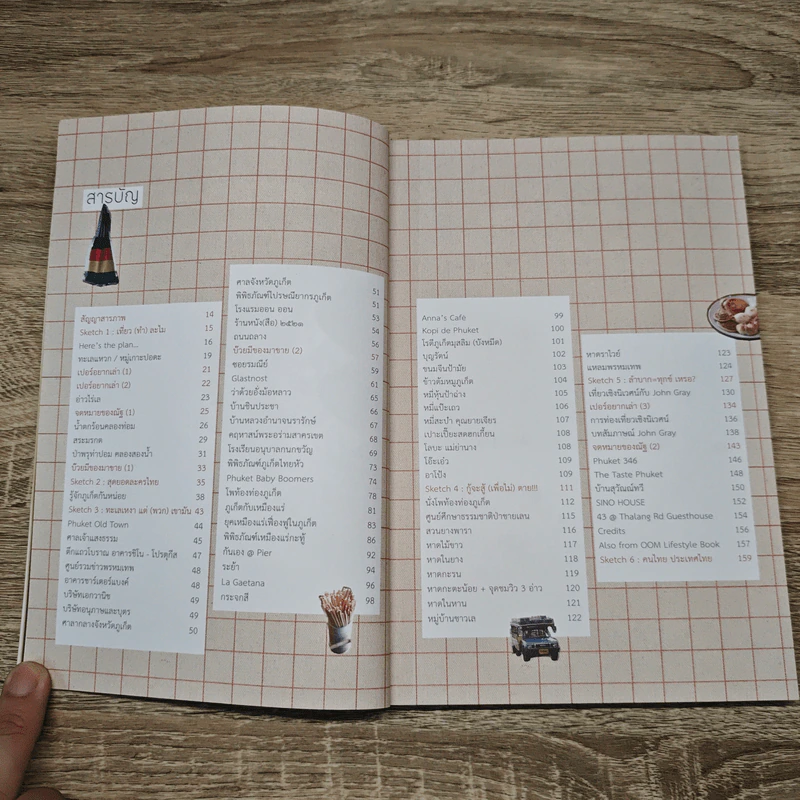 สารบัญ
สัญญาสารภาพ 14
Sketch 1 : เที่ยว (ทำ) ละไม 15
Here's the plan... 16
ทะเลแหวก / หมู่เกาะปอดะ 19
เปอร์อยากเล่า (1) 21
เปอร์อยากเล่า (2) 22
อ่าวไร่เล 23
จดหมายของณัฐ (1) 25
น้ำตกร้อนคลองท่อม 26
สระมรกต 29
ป่าพรุท่าปอม คลองสองน้ำ 31
บ๊วยมีของมาขาย (1) 33
Sketch 2 : สุดยอดละครไทย 35
รู้จักภูเก็ตกันหน่อย 38
Sketch 3 : ทะเลเหงา แต่ (พวก) เขามัน 43
Phuket Old Town 44
ศาลเจ้าแสงธรรม 45
ตึกแถวโบราณ อาคารชิโน - โปรตุกีส 47
ศูนย์รวมข่าวพรหมเทพ 48
อาคารชาร์เตอร์แบงค์ 48
บริษัทเอกวานิช 49
บริษัทอนุภาษและบุตร 49
ศาลากลางจังหวัดภูเก็ต 50
ศาลจังหวัดภูเก็ต 51
พิพิธภัณฑ์ไปรษณียากรภูเก็ต 51
โรงแรมออน ออน 53
ร้านหนัง(สือ) ๒๕๒๑ 54
ถนนถลาง 56
บ๊วยมีของมาขาย (2) 57
ซอยรมณีย์ 59
Glastnost 60
ว่าด้วยอั่งม้อหลาว 61
บ้านชินประชา 62
บ้านหลวงอำนาจนรารักษ์ 67
คฤหาสน์พระอร่ามสาครเขต 68
โรงเรียนอนุบาลกนกขวัญ 69
พิพิธภัณฑ์ภูเก็ตไทยหัว 73
Phuket Baby Boomers 74
โพท้องท่องภูเก็ต 78
ภูเก็ตกับเหมืองแร่ 81
ยุคเหมืองแร่เฟื่องฟูในภูเก็ต 83
พิพิธภัณฑ์เหมืองแร่กะทู้ 86
กันเอง @ Pier 92
ระย้า 94
La Gaetana 96
กระจกสี 98
Anna's Café 99
Kopi de Phuket 100
โรตีภูเก็ตมุสลิม (บังหมีด) 101
บุญรัตน์ 102
ขนมจีนป้ามัย 103
ข้าวต้มหมูภูเก็ต 104
หมี่หุ้นป่าฉ่าง 105
หมี่แป๊ะเถว 106
หมี่สะปำ คุณยายเจียร 107
เปาะเปี๊ยะสดฮกเกี้ยน 108
โลบะ แม่ย่านาง 108
โอ๊ะเอ๋ว 109
อาโป้ง 109
Sketch 4 : กู้จะสู้ (เพื่อไม่) ตาย!!! 111
นั่งโพท้องท่องภูเก็ต 112
ศูนย์ศึกษาธรรมชาติป่าชายเลน 115
สวนยางพารา 116
หาดไม้ขาว 117
หาดในยาง 118
หาดกะรน 119
หาดกะตะน้อย + จุดชมวิว 3 อ่าว 120
หาดในหาน 121
หมู่บ้านชาวเล 122
หาดราไวย์ 123
แหลมพรหมเทพ 124
Sketch 5 : ลำบาก=ทุกข์ เหรอ? 127
เที่ยวเชิงนิเวศน์กับ John Gray 130
เปอร์อยากเล่า (3) 134
การท่องเที่ยวเชิงนิเวศน์ 136
บทสัมภาษณ์ John Gray 138
จดหมายของณัฐ (2) 143
Phuket 346 146
The Taste Phuket 148
บ้านสุวัณณ์ทวี 150
SINO HOUSE 152
43 @ Thalang Rd Guesthouse 154
Credits 156
Also from OOM Lifestyle Book 157
Sketch 6 : คนไทย ประเทศไทย 159